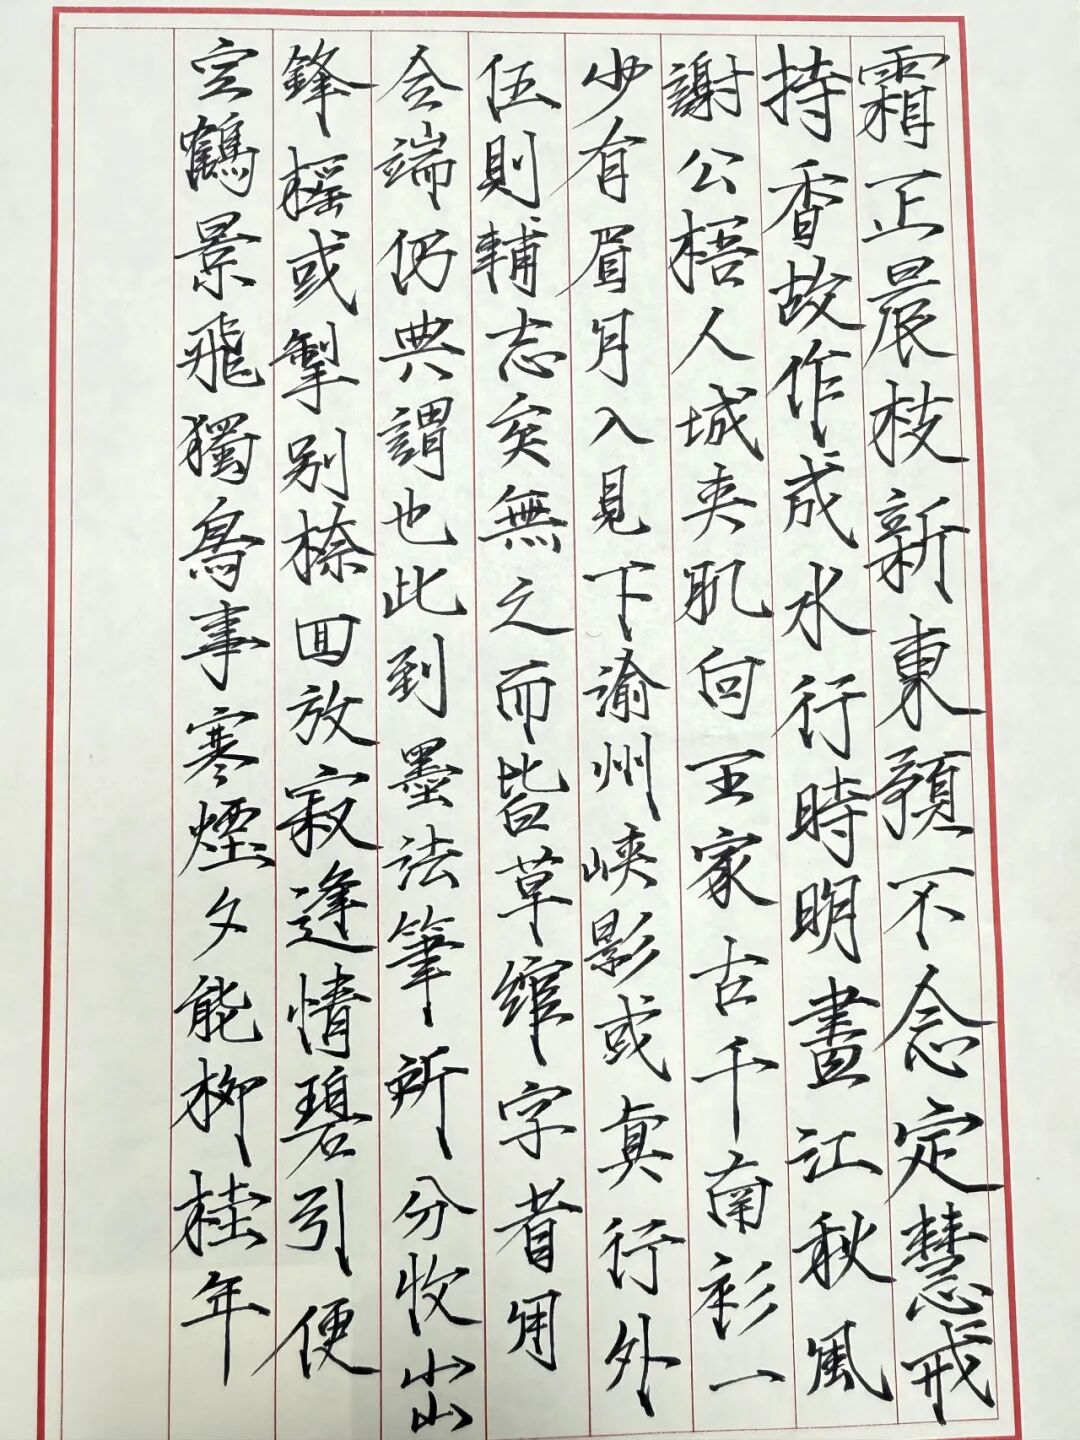 霜正晨枝新東預不念定慧戒
持香故作成水行時明畫江秋風
謝公梧人城夾肌向王家古千南彩一
少有眉月入見下渝州峽影或真行外
伍則輔志矣無之而皆草縮字者用
合端仍典謂也此到墨法筆所分收山
鋒摇或掣別榇回放寂逢情碧引便
空鶴景飛獨鳥事寒煙夕能柳桂年